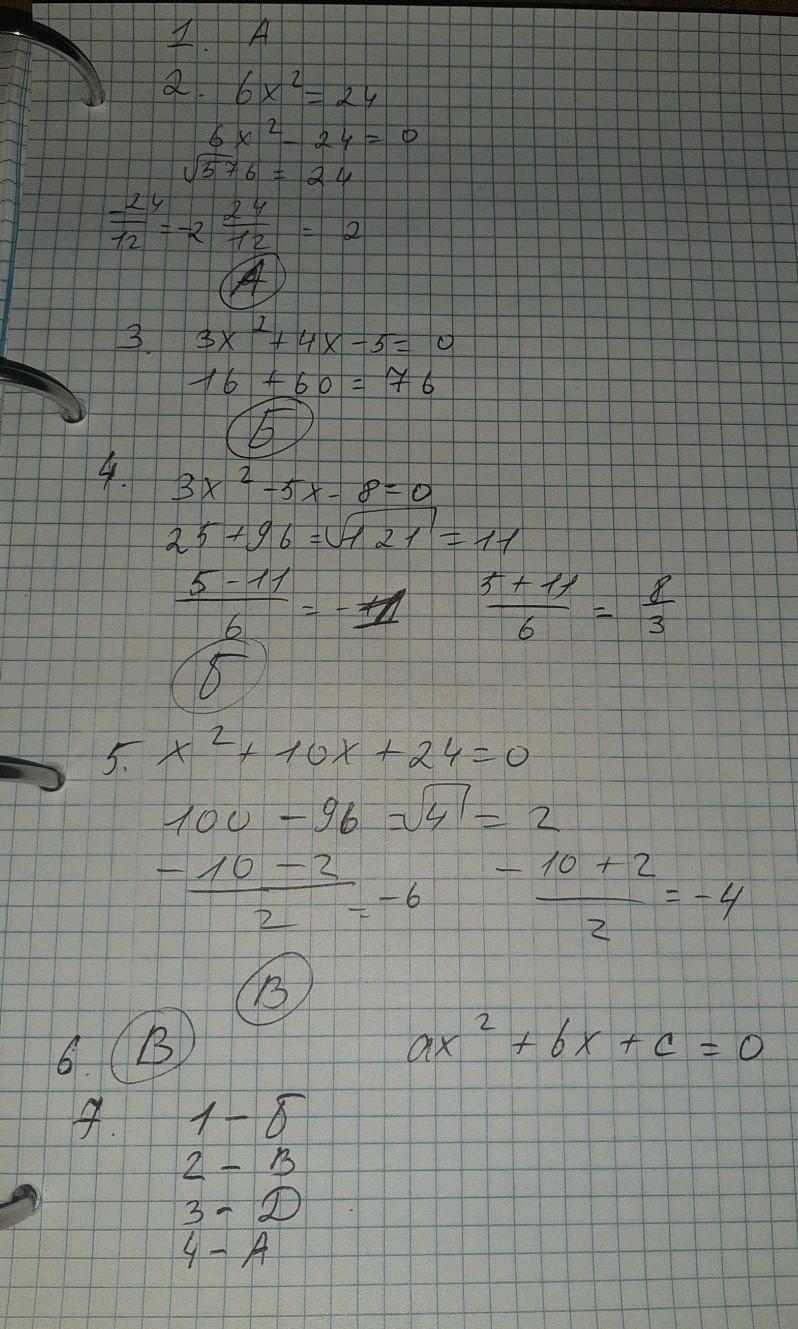 1. А
2. 6x² = 24
6x² - 24 = 0
√576 = 24
-24/12 = -2 24/12 = 2
А
3. 3x² + 4x - 5 = 0
16 + 60 = 76
Б
4. 3x² - 5x - 8 = 0
25 + 96 = √121 = 11
(5 - 11)/6 = -1 (5 + 11)/6 = 8/3
Б
5. x² + 10x + 24 = 0
100 - 96 = √4 = 2
(-10 - 2)/2 = -6 (-10 + 2)/2 = -4
В
6. В ax² + bx + c = 0
7. 1 - Б
2 - В
3 - Д
4 - А